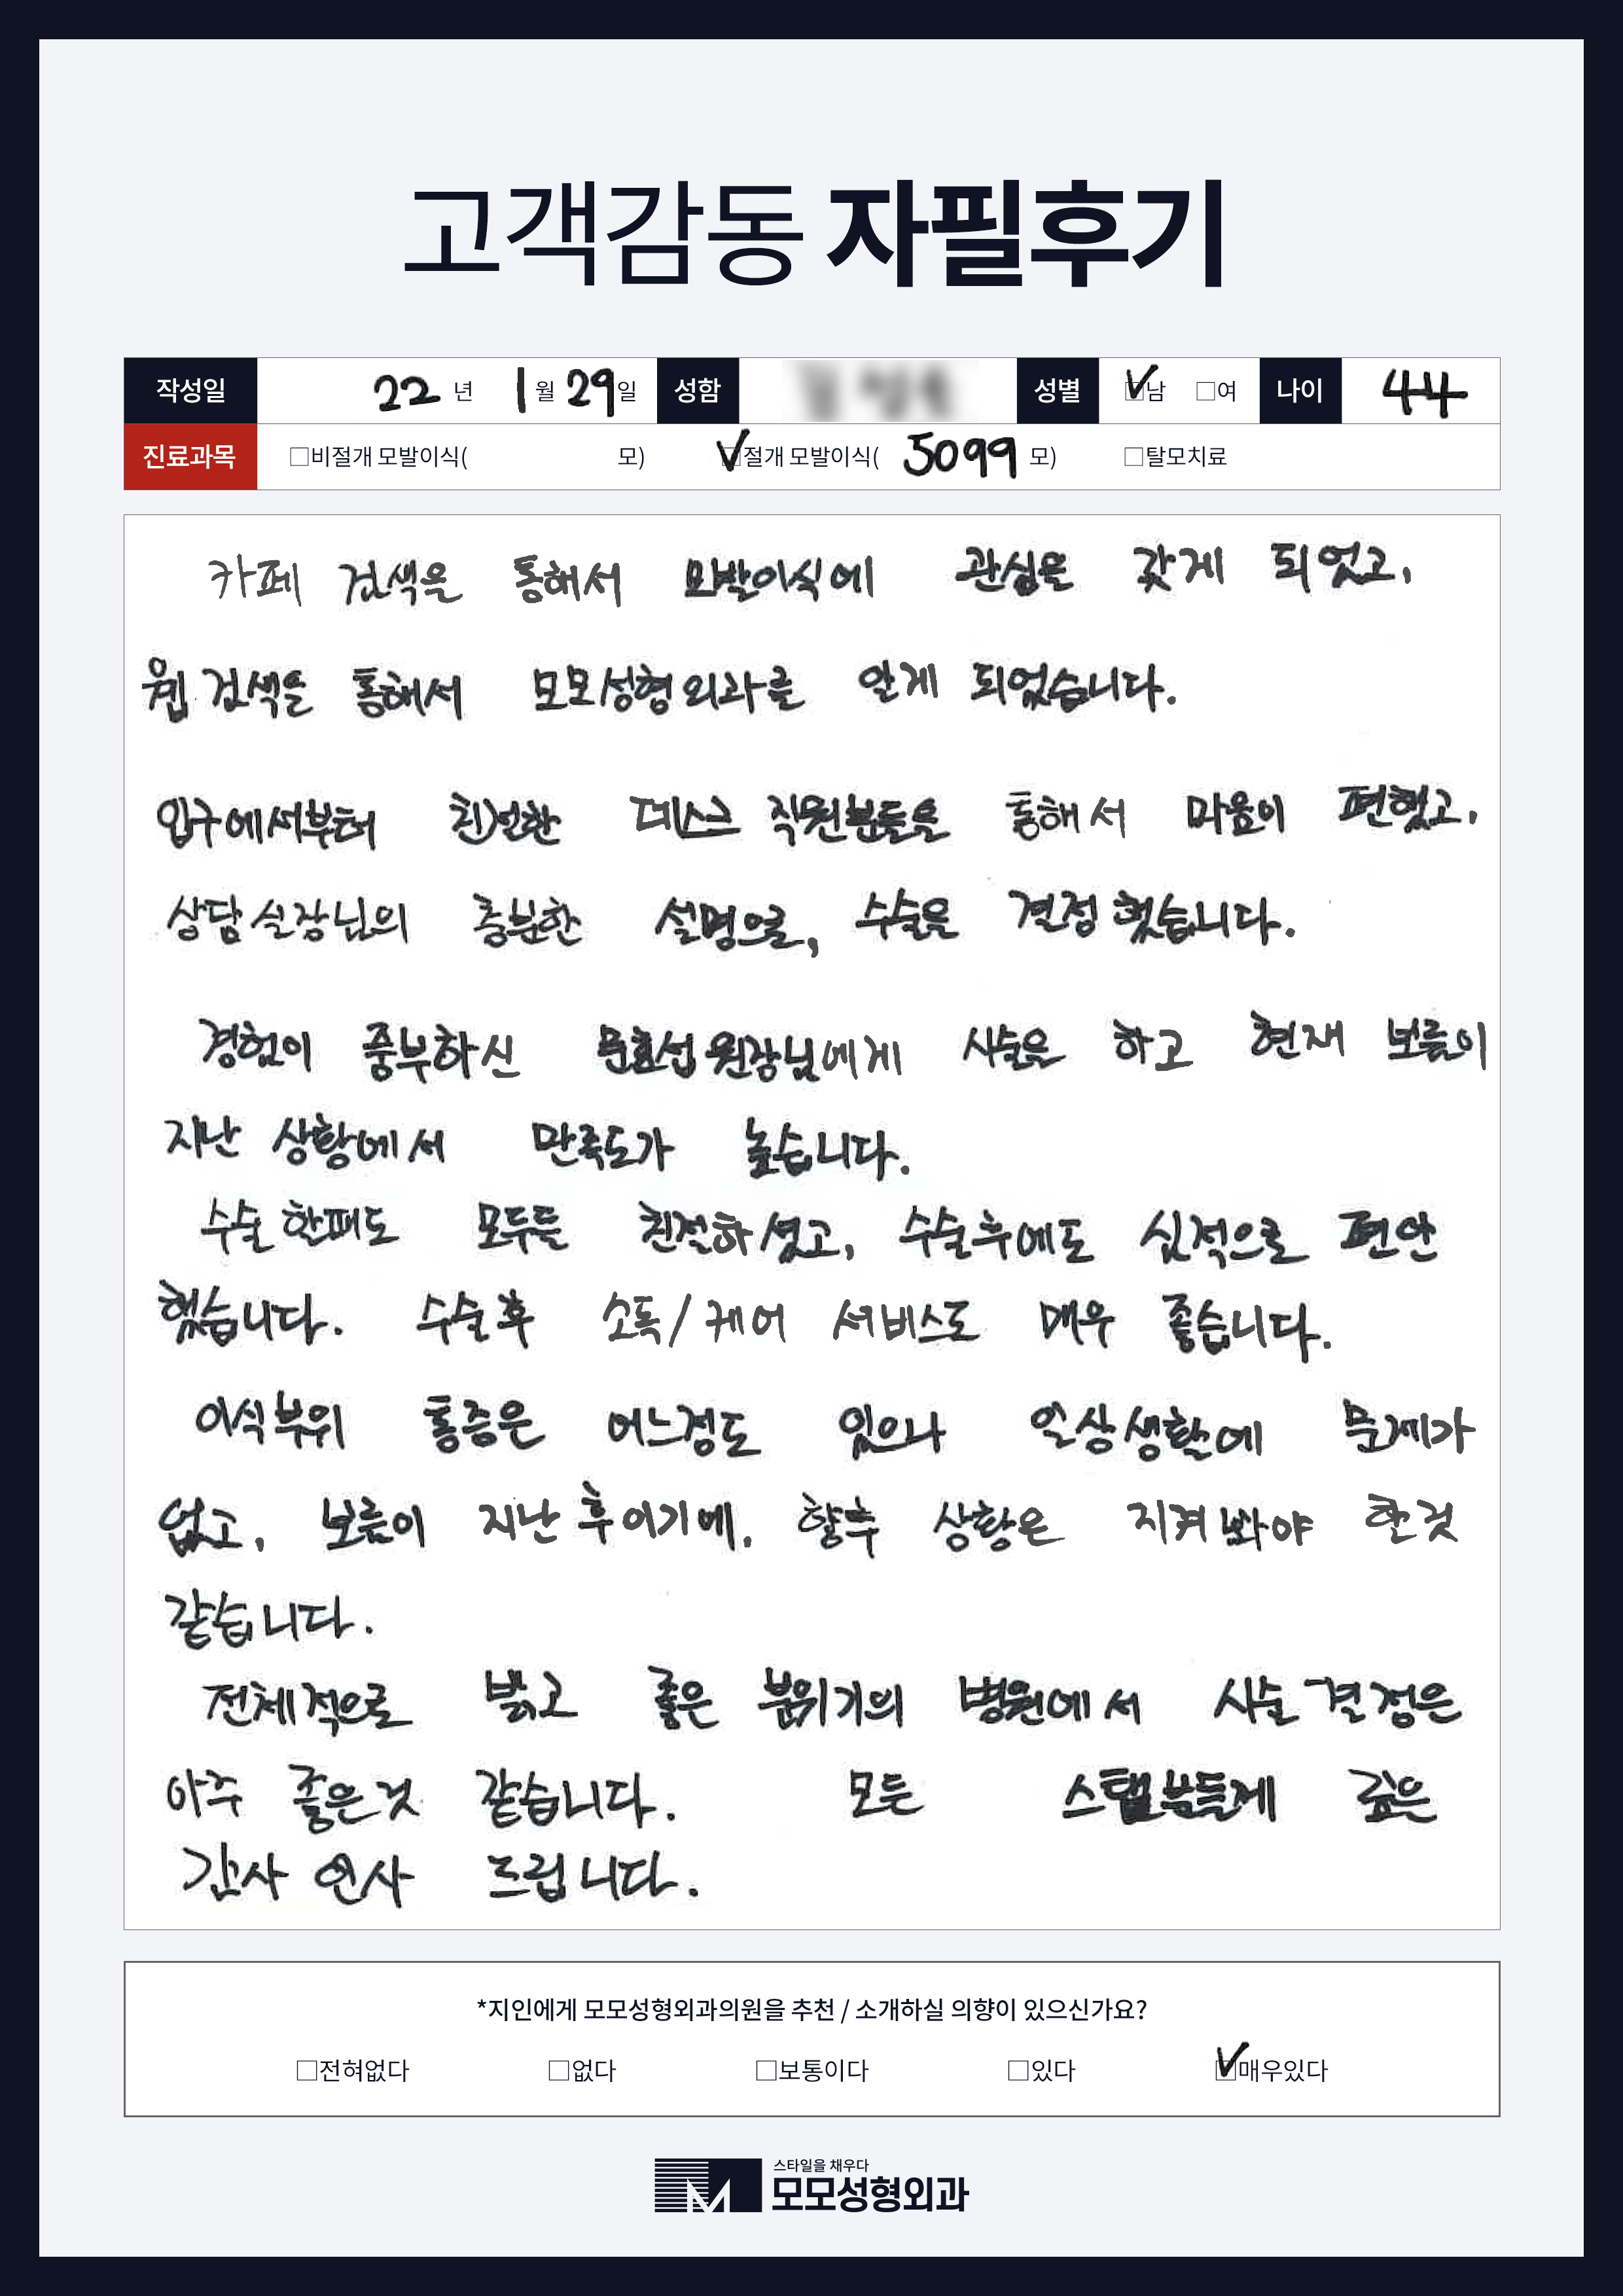 고객감동 자필후기
작성일 22 년 1 월 29일 성함 성별 ☑남 □여 나이 44
진료과목 □비절개 모발이식( 모) ☑절개 모발이식( 5099 모) □탈모치료
카페 검색을 통해서 모발이식에 관심을 갖게 되었고,
웹 검색을 통해서 모모성형외과를 알게 되었습니다.
입구에서부터 친절한 데스크 직원분들을 통해서 마음이 편했고,
상담실장님의 충분한 설명으로, 수술을 결정했습니다.
경험이 풍부하신 문효섭 원장님에게 시술을 하고 현재 보름이
지난 상황에서 만족도가 높습니다.
수술 할때도 모두들 친절하셨고, 수술후에도 심적으로 편안
했습니다. 수술후 소독/케어 서비스도 매우 좋습니다.
이식부위 통증은 어느정도 있으나 일상생활에 문제가
없고, 보름이 지난 후이기에, 향후 상황은 지켜봐야 할것
같습니다.
전체적으로 밝고 좋은 분위기의 병원에서 시술 결정은
아주 좋은것 같습니다. 모든 스탭분들께 깊은
감사 인사 드립니다.
*지인에게 모모성형외과의원을 추천 / 소개하실 의향이 있으신가요?
□전혀없다 □없다 □보통이다 □있다 ☑매우있다
스타일을 채우다
모모성형외과